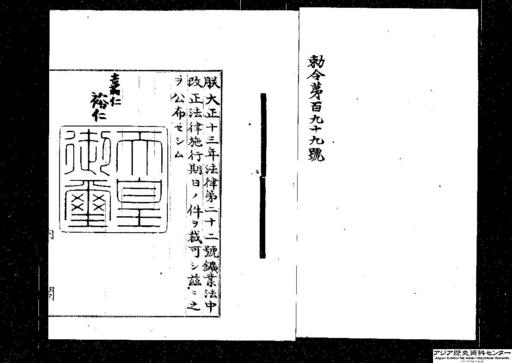 勅令第百九十九號
朕大正十三年法律第二十二號鑛業法中
改正法律施行期日ノ件ヲ裁可シ茲ニ之
ヲ公布セシム
嘉仁
裕仁
天皇
御璽
アジア歴史資料センター
Japan Center for Asian Historical Records